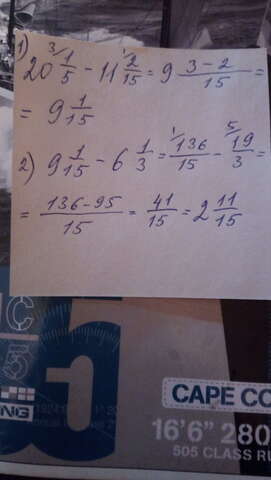 1)
20 3/ 1/5 - 11 1/ 2/15 = 9 (3-2)/15 =
= 9 1/15
2) 9 1/15 - 6 1/3 = 1/ 136/15 - 5/ 19/3 =
= (136-95)/15 = 41/15 = 2 11/15
CAPE CO
16'6" 280
505 CLASS RU